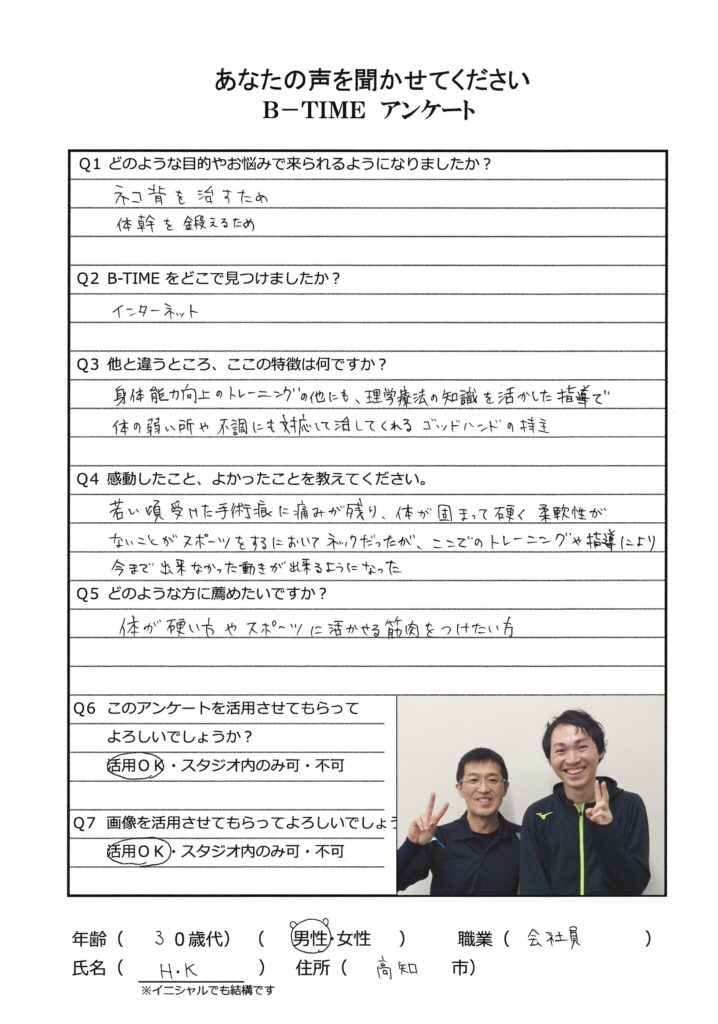 あなたの声を聞かせてください
B－TIME アンケート
Q1 どのような目的やお悩みで来られるようになりましたか？
ネコ背を治すため
体幹を鍛えるため
Q2 B-TIME をどこで見つけましたか？
インターネット
Q3 他と違うところ、ここの特徴は何ですか？
身体能力向上のトレーニングの他にも、理学療法の知識を活かした指導で
体の弱い所や不調にも対応して治してくれるゴッドハンドの持主
Q4 感動したこと、よかったことを教えてください。
若い頃受けた手術痕に痛みが残り、体が固まって硬く柔軟性が
ないことがスポーツをするにおいてネックだったが、ここでのトレーニングや指導により
今まで出来なかった動きが出来るようになった
Q5 どのような方に薦めたいですか？
体が硬い方やスポーツに活かせる筋肉をつけたい方
Q6 このアンケートを活用させてもらって
よろしいでしょうか？
活用ＯＫ・スタジオ内のみ可・不可
Q7 画像を活用させてもらってよろしいでしょう
活用ＯＫ・スタジオ内のみ可・不可
年齢（ ３０歳代）（ 男性・女性 ） 職業（ 会社員 ）
氏名（ H・K ） 住所（ 高知 市）
※イニシャルでも結構です